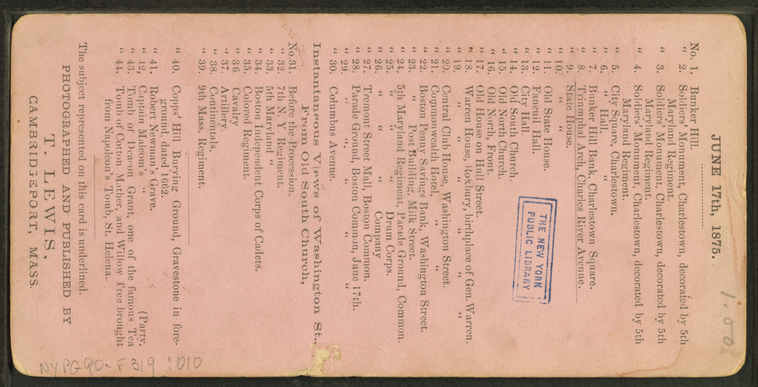 JUNE 17th, 1875.
No. 1. Bunker Hill.
" 2. Soldiers' Monument, Charlestown, decorated by 5th
Maryland Regiment.
" 3. Soldiers' Monument, Charlestown, decorated by 5th
Maryland Regiment.
" 4. Soldiers' Monument, Charlestown, decorated by 5th
Maryland Regiment.
" 5. City Square, Charlestown.
" 6. " Hall, "
" 7. Bunker Hill Bank, Charlestown Square.
" 8. Triumphal Arch, Charles River Avenue.
" 9. State House.
" 10. " "
" 11. Old State House.
" 12. Faneuil Hall.
" 13. City Hall.
" 14. Old South Church.
" 15. Old North Church.
" 16. Old North, Front.
" 17. Old House on Hull Street.
" 18. Warren House, Roxbury, birthplace of Gen. Warren.
" 19. " " " " " "
" 20. Central Club House, Washington Street.
" 21. Commonwealth Hotel, " "
" 22. Boston Penny Savings Bank, Washington Street.
" 23. " Post Building, Milk Street.
" 24. 5th Maryland Regiment, Parade Ground, Common.
" 25. " " " Drum Corps.
" 26. " " Company
" 27. Tremont Street Mall, Boston Common.
" 28. Parade Ground, Boston Common, June 17th.
" 29. " " " "
" 30. Columbus Avenue.
Instantaneous Views of Washington St.,
From Old South Church,
No. 31. Before the Procession.
" 32. 7th N. Y. Regiment.
" 33. 5th Maryland "
" 34. Boston Independent Corps of Cadets.
" 35. Colored Regiment.
" 36. Cavalry.
" 37. Artillery.
" 38. Continentals.
" 39. 9th Mass. Regiment.
" 40. Copps' Hill Burying Ground, Gravestone in fore-
ground, dated 1662.
" 41. Robert Newman's Grave.
" 42. Captain Malcom's " (Party.
" 43. Tomb of Deacon Grant, one of the famous Tea
" 44. Tomb of Cotton Mather, and Willow Tree brought
from Napoleon's Tomb, St. Helena.
The subject represented on this card is underlined.
PHOTOGRAPHED AND PUBLISHED BY
T. LEWIS,
CAMBRIDGEPORT, MASS.
THE NEW YORK
PUBLIC LIBRARY